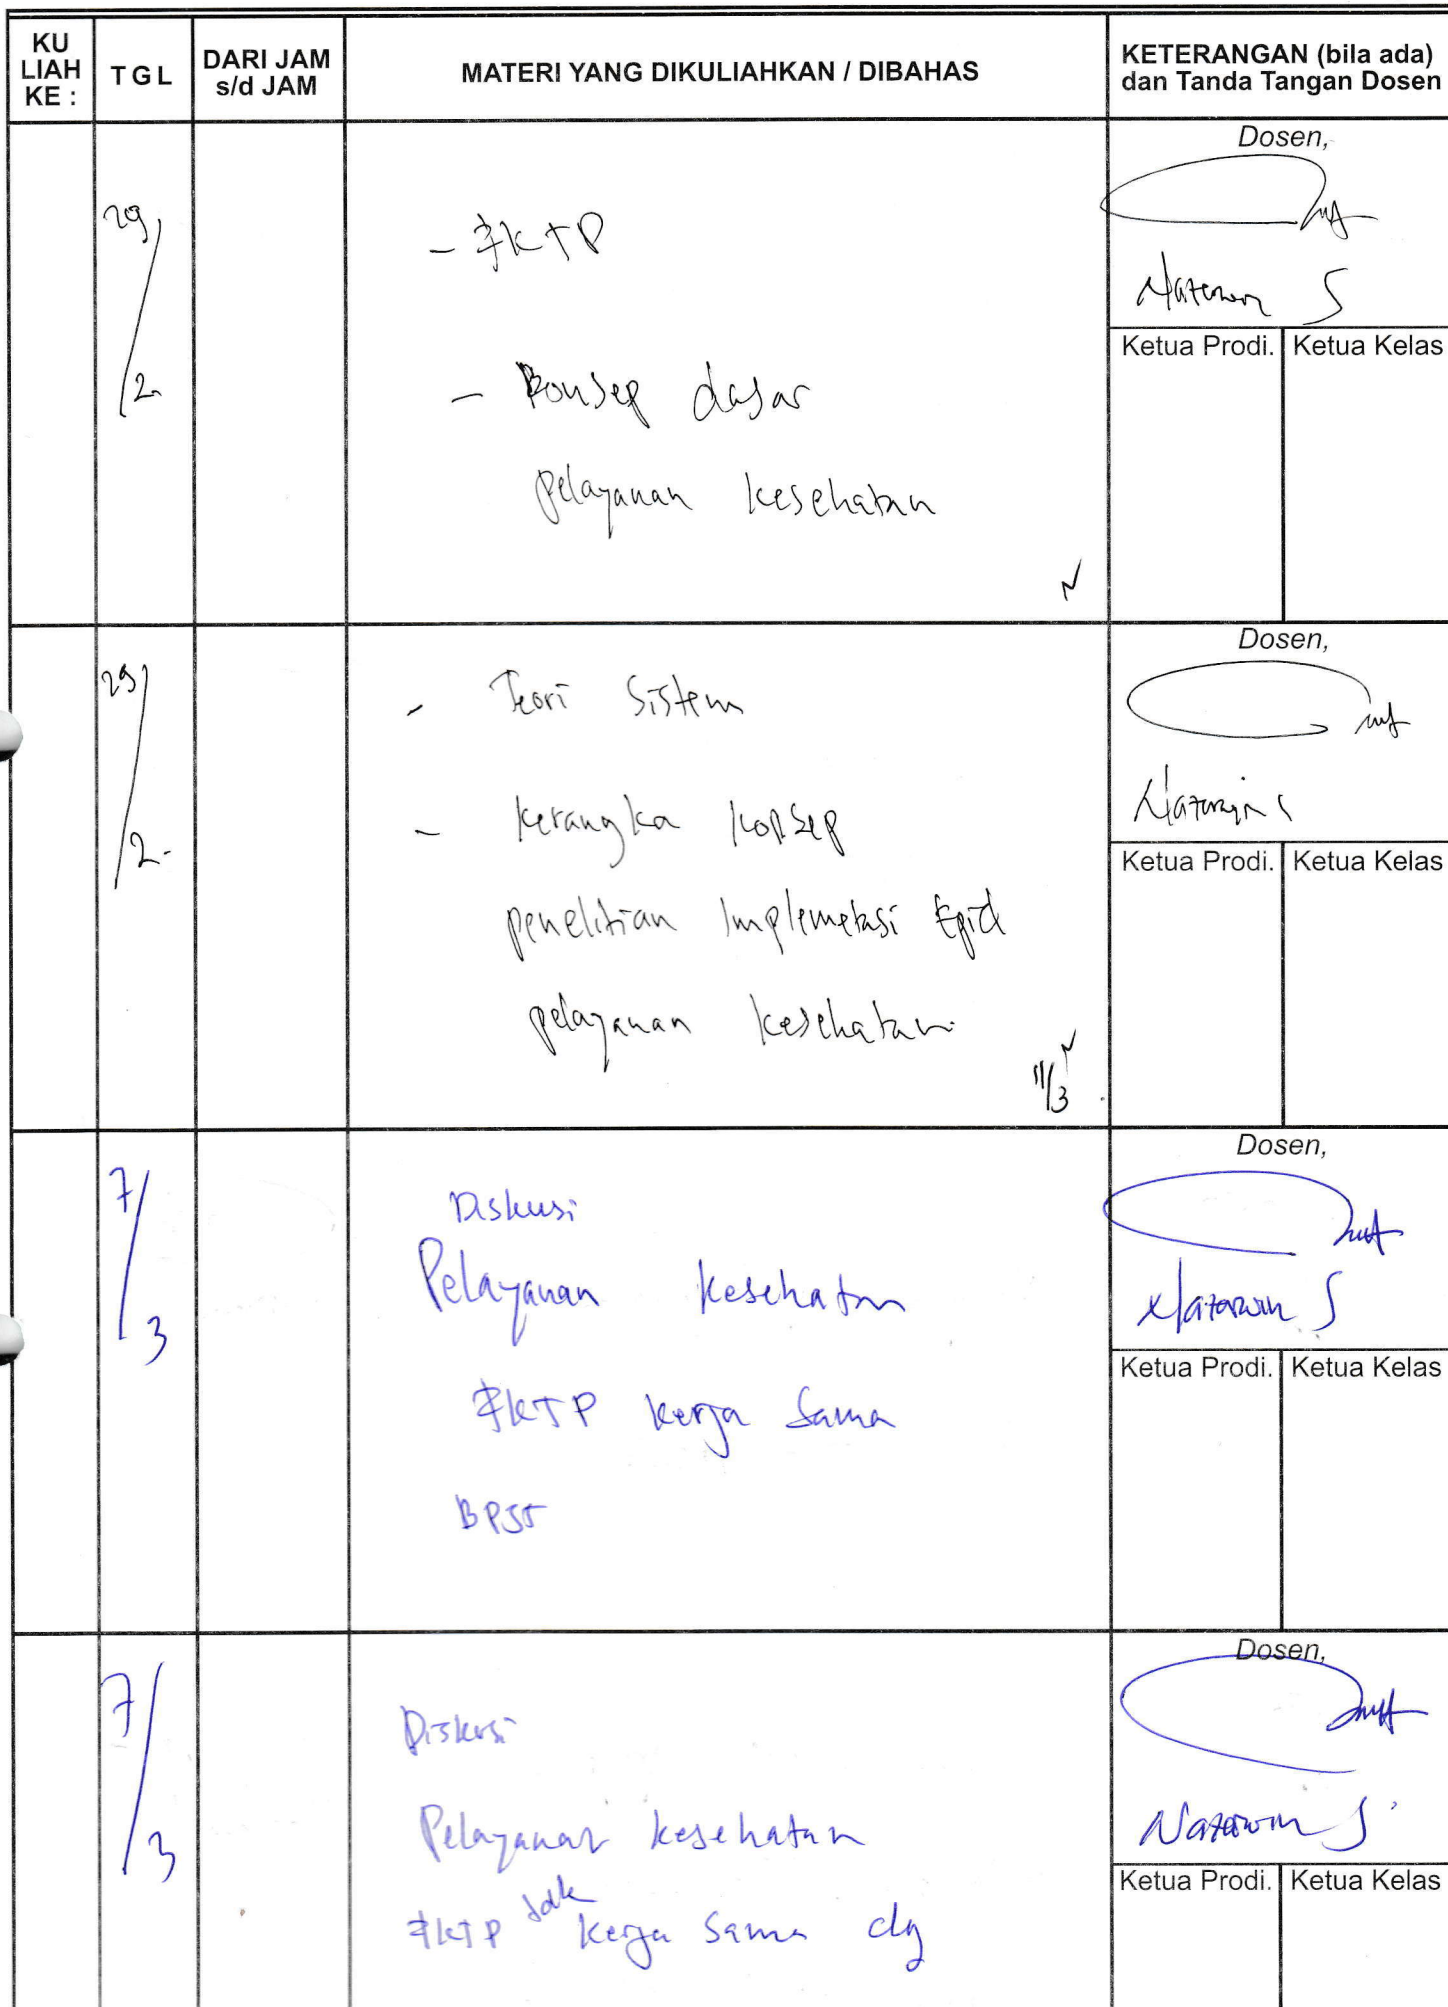 KU LIAH KE :
TGL
DARI JAM s/d JAM
MATERI YANG DIKULIAHKAN / DIBAHAS
KETERANGAN (bila ada) dan Tanda Tangan Dosen
29/2
- FKTP
- Konsep dasar
pelayanan kesehatan
Dosen,
Ketua Prodi.
Ketua Kelas
29/2
- Teori Sistem
- Kerangka konsep
penelitian Implemetasi Epid
pelayanan kesehatan
11/3
Dosen,
Ketua Prodi.
Ketua Kelas
7/3
Diskusi
Pelayanan kesehatan
FKTP kerja sama
BPJS
Dosen,
Ketua Prodi.
Ketua Kelas
7/3
Diskusi
Pelayanan kesehatan
FKTP tdk kerja sama dg
Dosen,
Ketua Prodi.
Ketua Kelas